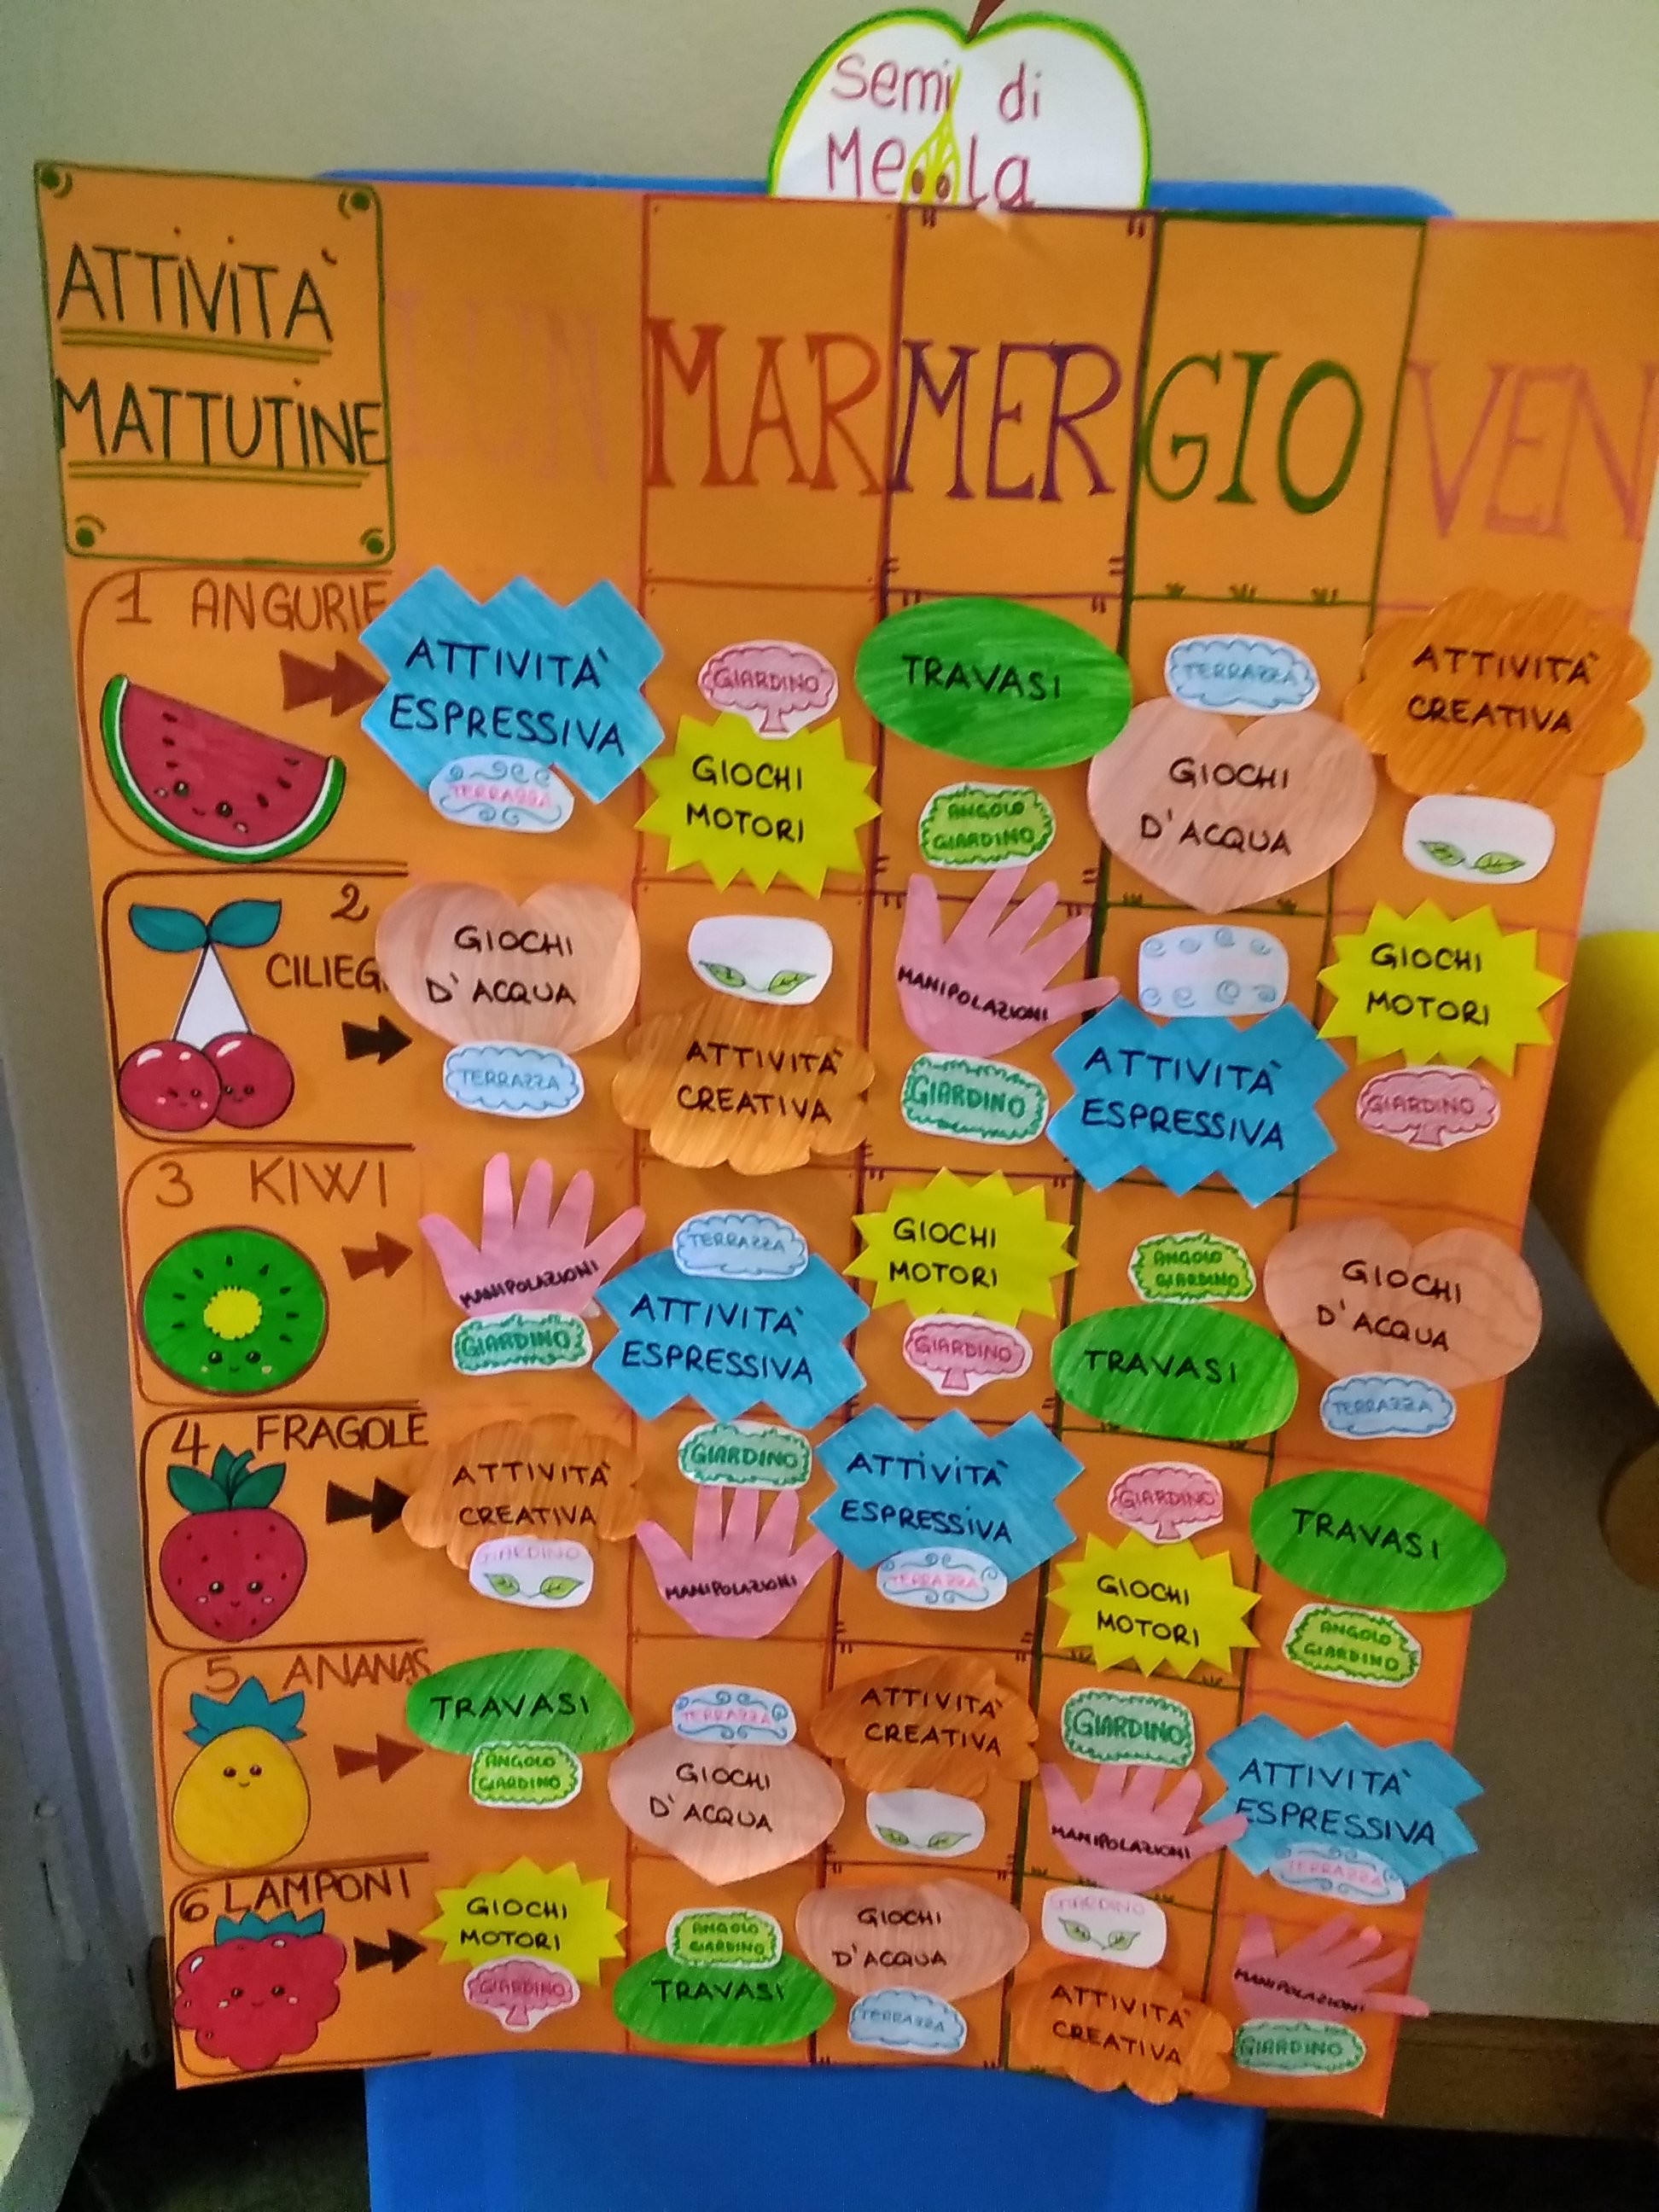 semi di
Mela
ATTIVITÀ
MATTUTINE
LUN
MAR
MER
GIO
VEN
1 ANGURIE
ATTIVITÀ
ESPRESSIVA
TERRAZZA
GIARDINO
GIOCHI
MOTORI
TRAVASI
ANGOLO
GIARDINO
TERRAZZA
GIOCHI
D'ACQUA
ATTIVITÀ
CREATIVA
2
CILIEG
GIOCHI
D'ACQUA
TERRAZZA
ATTIVITÀ
CREATIVA
MANIPOLAZIONI
GIARDINO
ATTIVITÀ
ESPRESSIVA
GIOCHI
MOTORI
GIARDINO
3 KIWI
MANIPOLAZIONI
GIARDINO
TERRAZZA
ATTIVITÀ
ESPRESSIVA
GIOCHI
MOTORI
GIARDINO
ANGOLO
GIARDINO
TRAVASI
GIOCHI
D'ACQUA
TERRAZZA
4 FRAGOLE
ATTIVITÀ
CREATIVA
GIARDINO
GIARDINO
MANIPOLAZIONI
ATTIVITÀ
ESPRESSIVA
TERRAZZA
GIARDINO
GIOCHI
MOTORI
TRAVASI
ANGOLO
GIARDINO
5 ANANAS
TRAVASI
ANGOLO
GIARDINO
TERRAZZA
GIOCHI
D'ACQUA
ATTIVITÀ
CREATIVA
GIARDINO
MANIPOLAZIONI
ATTIVITÀ
ESPRESSIVA
TERRAZZA
6 LAMPONI
GIOCHI
MOTORI
GIARDINO
ANGOLO
GIARDINO
TRAVASI
GIOCHI
D'ACQUA
TERRAZZA
GIARDINO
ATTIVITÀ
CREATIVA
MANIPOLAZIONI
GIARDINO